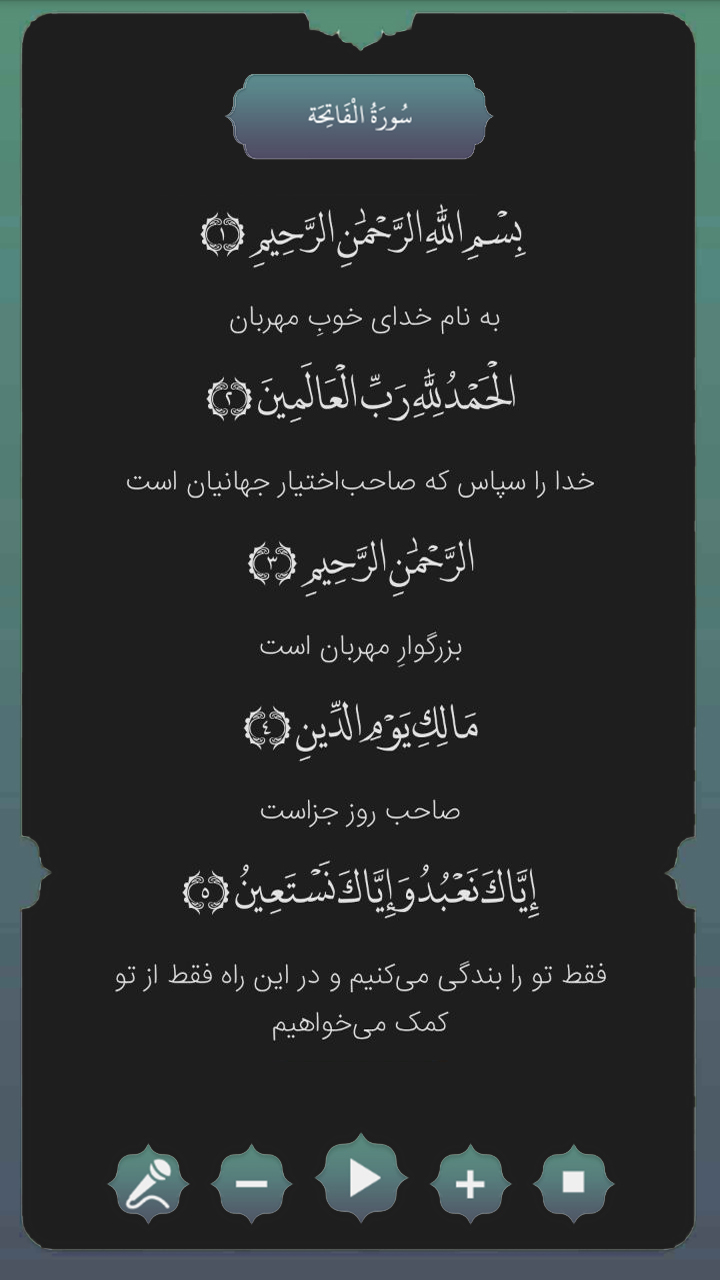 سُورَةُ الْفَاتِحَة
بِسْمِ اللَّهِ الرَّحْمَٰنِ الرَّحِيمِ ١
به نام خدای خوبِ مهربان
الْحَمْدُ لِلَّهِ رَبِّ الْعَالَمِينَ ٢
خدا را سپاس که صاحب‌اختیار جهانیان است
الرَّحْمَٰنِ الرَّحِيمِ ٣
بزرگوارِ مهربان است
مَالِكِ يَوْمِ الدِّينِ ٤
صاحب روز جزاست
إِيَّاكَ نَعْبُدُ وَإِيَّاكَ نَسْتَعِينُ ٥
فقط تو را بندگی می‌کنیم و در این راه فقط از تو
کمک می‌خواهیم